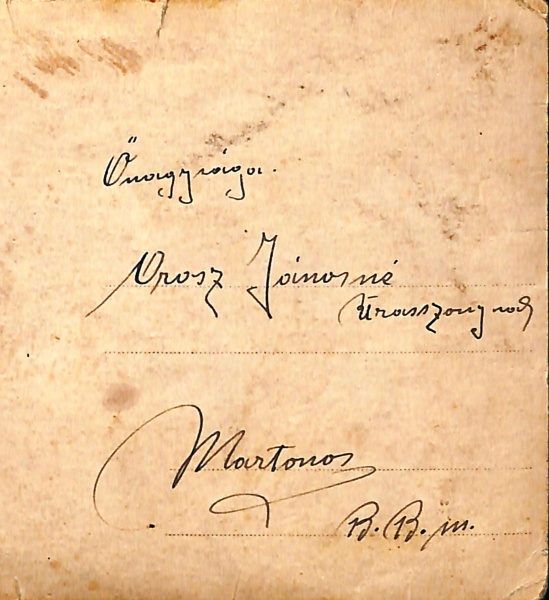 Őnagysága.
Orosz Jánosné
Úrasszonynak
Martonos
B. B. m.